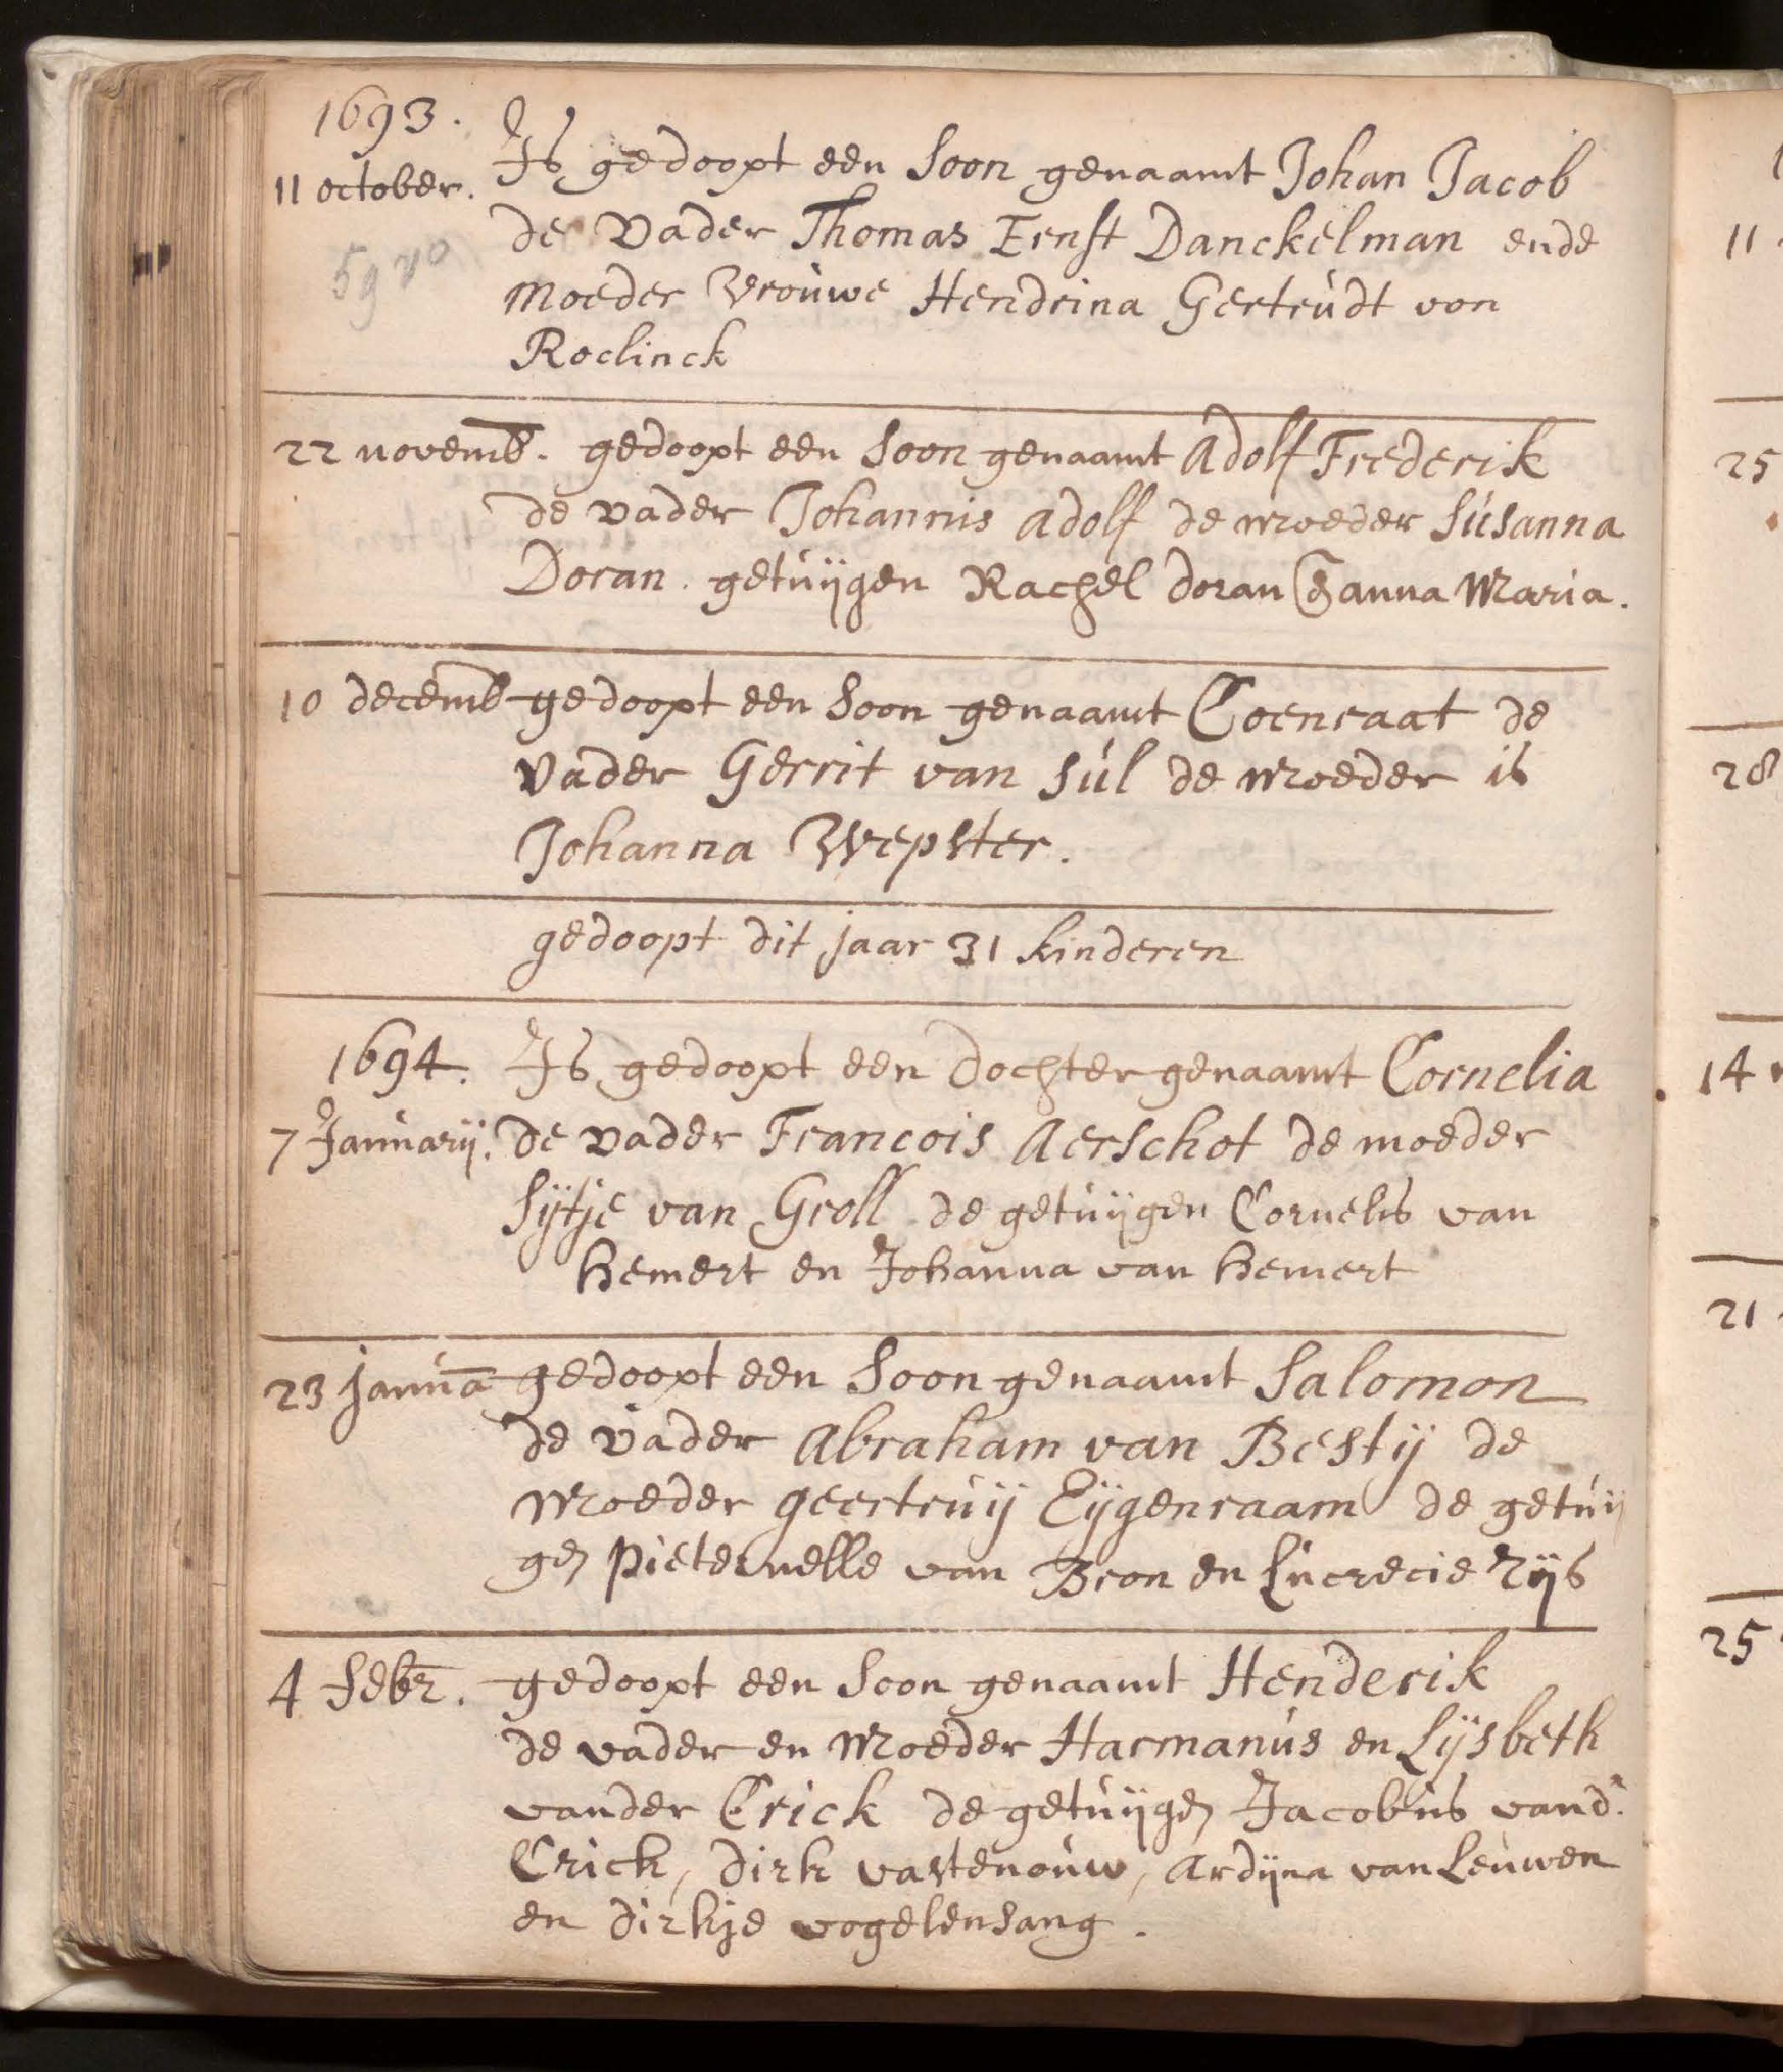 1693.
11 october. Is gedoopt een Soon genaamt Johan Jacob
59 vo
de Vader Thomas Ernst Danckelman ende
Moeder Vrouwe Hendrina Gertrudt von
Roelinck
22 novemb. gedoopt een Soon genaamt Adolf Frederik
de vader Johannis Adolf de moeder Susanna
Doran. getuijgen Rachel doran & anna Maria.
10 decemb gedoopt een Soon genaamt Coenraat de
Vader Gerrit van Sul de moeder is
Johanna Wepster.
gedoopt dit jaar 31 kinderen
1694. Is gedoopt een Dochter genaamt Cornelia
7 Januarij. de vader Francois Aerschot de moeder
Sijtje van Groll de getuijgen Cornelis van
Hemert en Johanna van Hemert
23 janua gedoopt een Soon genaamt Salomon
de vader Abraham van Bestij de
Moeder geertruij Eijgenraam de getuij
gen Pieternelle van Bron en Lucrecie Rijs
4 Febr. gedoopt een Soon genaamt Henderik
de vader en Moeder Harmanus en Lijsbeth
vander Crick de getuijgen Jacobus vand.
Crick, Dirk vastenouw, Ardijna van Leuwen
en Dirkje vogelensang.
11
25
28
14
21
25